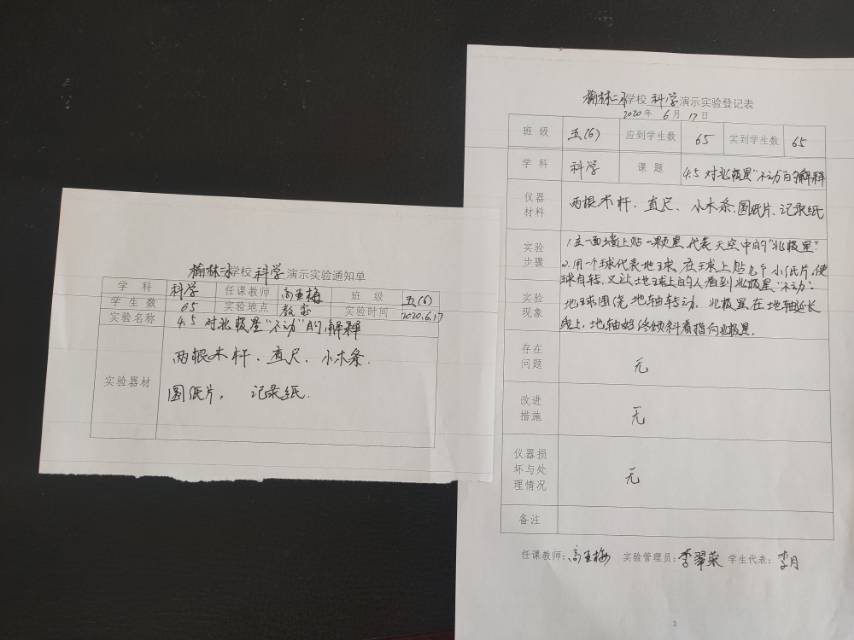 榆林二小学校 科学 演示实验通知单
学科 科学 任课教师 高亚梅 班级 五(6)
学生数 65 实验地点 教室 实验时间 2020.6.17
实验名称 4.5 对北极星“不动”的解释
两根木杆、直尺、小木条、
实验器材
圆纸片, 记录纸.
榆林二小学校 科学 演示实验登记表
2020年 6月 17日
班级 五(6) 应到学生数 65 实到学生数 65
学科 科学 课题 4.5 对北极星“不动”的解释
仪器材料 两根木杆、直尺、小木条、圆纸片、记录纸
实验步骤 1.在一面墙上贴一颗星,代表天空中的“北极星”
2.用一个球代表地球,在球上贴 小纸片,使
球自转,又让地球上的人看到北极星“不动”.
实验现象 地球围绕地轴转动,北极星在地轴延长
线上,地轴始终倾斜着指向北极星.
存在问题 无
改进措施 无
仪器损坏与处理情况 无
备注
任课教师:高亚梅 实验管理员:李翠荣 学生代表:李月